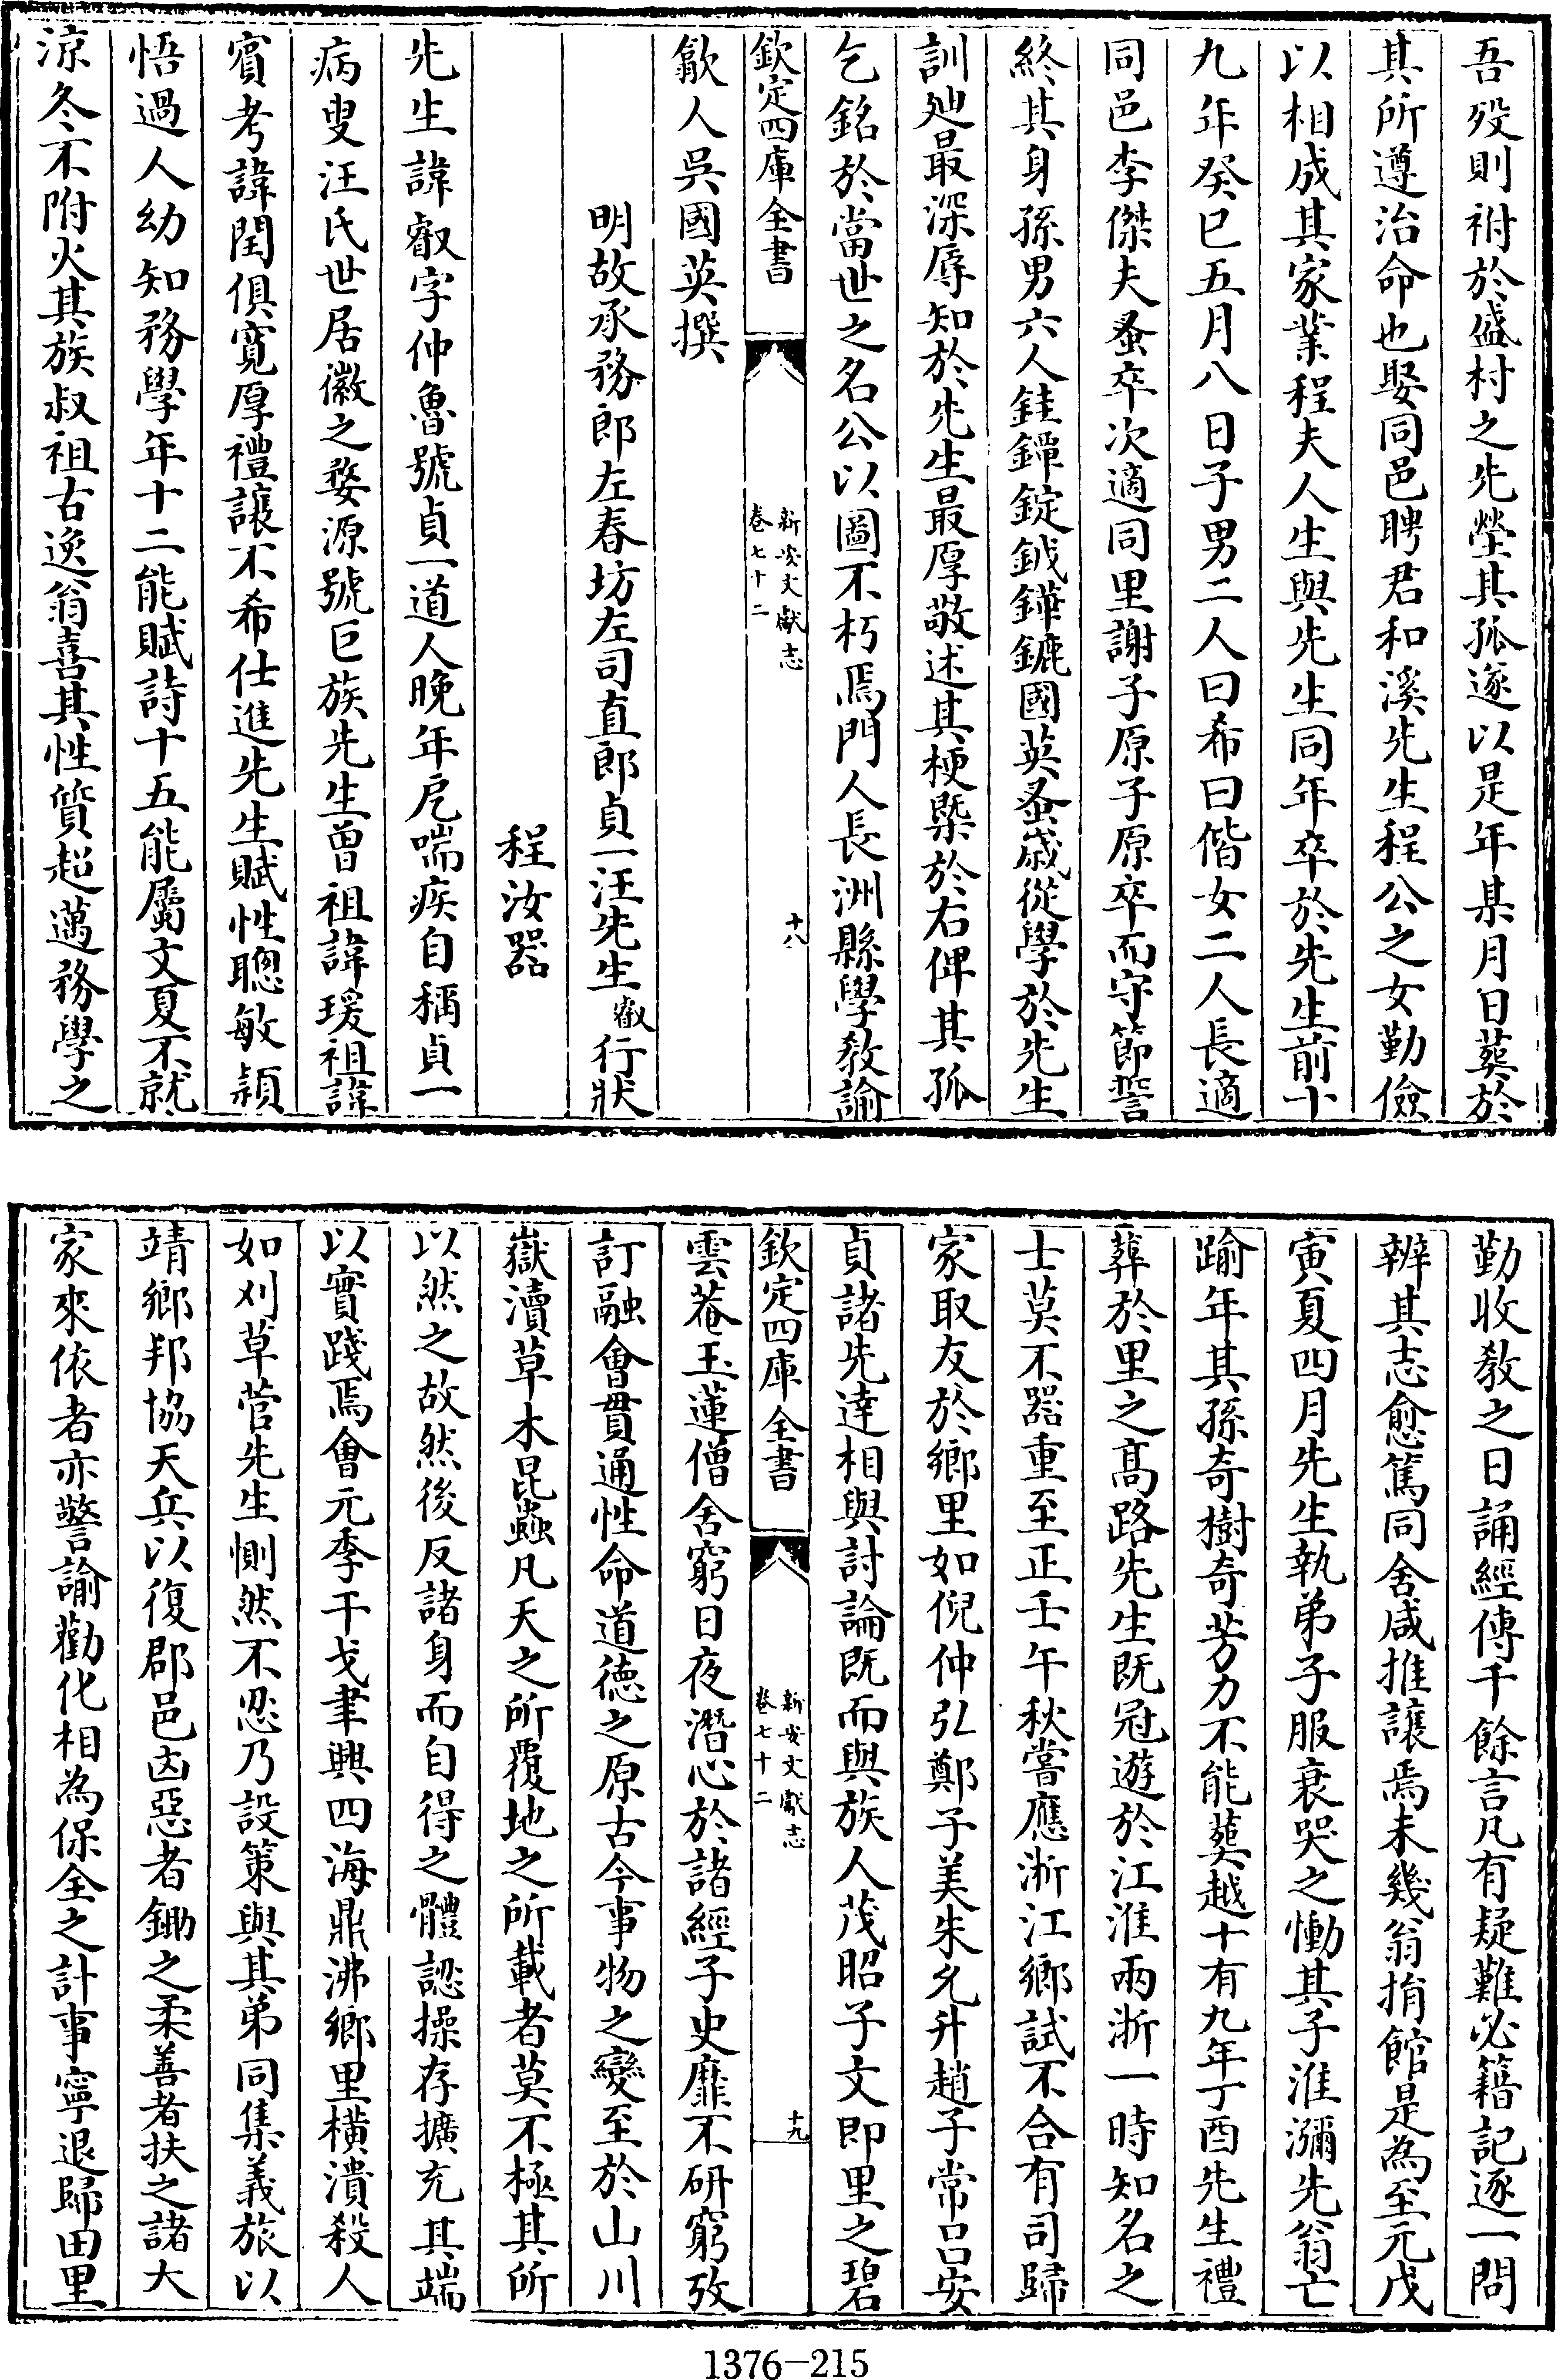 吾歿則祔於盛村之先塋其孤遂以是年某月日葬於
其所遵治命也娶同邑聘君和溪先生程公之女勤儉
以相成其家業程夫人生與先生同年卒於先生前十
九年癸巳五月八日子男二人曰希曰偕女二人長適
同邑李傑夫蚤卒次適同里謝子原子原卒而守節誓
終其身孫男六人銈鐔錠鉞鏵鑣國英蚤歲從學於先生
訓廸最深辱知於先生最厚敬述其梗槩於右俾其孤
乞銘於當世之名公以圖不朽焉門人長洲縣學教諭
欽定四庫全書
新安文獻志
卷七十二
十八
歙人吳國英撰
明故承務郎左春坊左司直郎貞一汪先生叡行狀
程汝器
先生諱叡字仲魯號貞一道人晚年戹喘疾自稱貞一
病叟汪氏世居徽之婺源號巨族先生曾祖諱瑗祖諱
賓考諱閏俱寬厚禮讓不希仕進先生賦性聰敏穎
悟過人幼知務學年十二能賦詩十五能屬文夏不就
涼冬不附火其族叔祖古逸翁喜其性質超邁務學之
勤收教之日誦經傳千餘言凡有疑難必籍記逐一問
辨其志愈篤同舍咸推讓焉未幾翁捐館是為至元戊
寅夏四月先生執弟子服衰哭之慟其子淮瀰先翁亡
踰年其孫奇樹奇芳力不能葬越十有九年丁酉先生禮
葬於里之高路先生既冠遊於江淮兩浙一時知名之
士莫不器重至正壬午秋嘗應浙江鄉試不合有司歸
家取友於鄉里如倪仲弘鄭子美朱允升趙子常呂安
貞諸先達相與討論既而與族人茂昭子文即里之碧
欽定四庫全書
新安文獻志
卷七十二
十九
雲菴玉蓮僧舍窮日夜潛心於諸經子史靡不研窮攷
訂融會貫通性命道德之原古今事物之變至於山川
嶽瀆草木昆蟲凡天之所覆地之所載者莫不極其所
以然之故然後反諸身而自得之體認操存擴充其端
以實踐焉會元季干戈聿興四海鼎沸鄉里橫潰殺人
如刈草菅先生惻然不忍乃設策與其弟同集義旅以
靖鄉邦協天兵以復郡邑凶惡者鋤之柔善者扶之諸大
家來依者亦警諭勸化相為保全之計事寧退歸田里
1376—215